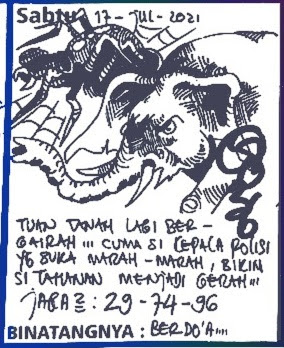 Sabtu 17 - JUL - 2021
TUAN TANAH LAGI BER -
GAIRAH ... CUMA SI KEPALA POLISI
YG SUKA MARAH - MARAH, BIKIN
SI TAHANAN MENJADI GERAH ...
JAGA2 : 29 - 74 - 96
BINATANGNYA : BERDO'A ...